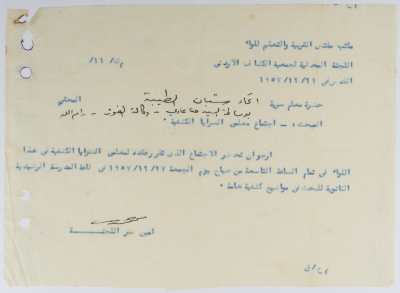 مكتب مفتش التربية والتعليم للواء
اللجنة المحلية لجمعية الكشاف الاردني
القدس في ١٩٥٧/١٢/٢١
حضرة معلم سرية اتحاد شبان الطيبة المحترم
بواسطة السيد حنا عازر - وكالة الغوث - رام الله
المبحث : - اجتماع معلمي السرايا الكشفية .
ارجو ان تحضر الاجتماع الذي تقرر عقده لمعلمي السرايا الكشفية في هذا
اللواء في تمام الساعة التاسعة من صباح يوم الجمعة ١٩٥٧/١٢/٢٧ في قاعة المدرسة الرشيدية
الثانوية للبحث في مواضيع كشفية هامة .
امين سر اللجنـــة